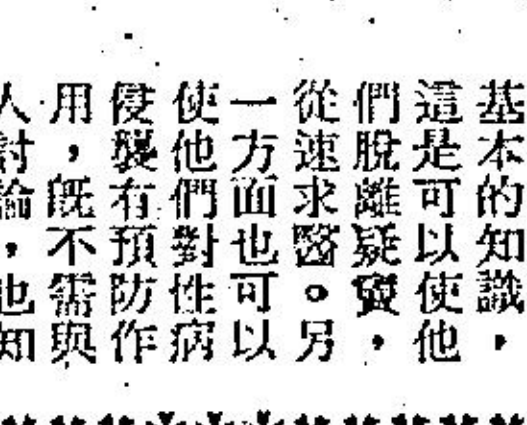 基本的知識，
這是可以使他
們脫離疑竇，
從速求醫。另
一方面也可以
使他們對性病
侵襲有預防作
用，既不需與
人討論，也知